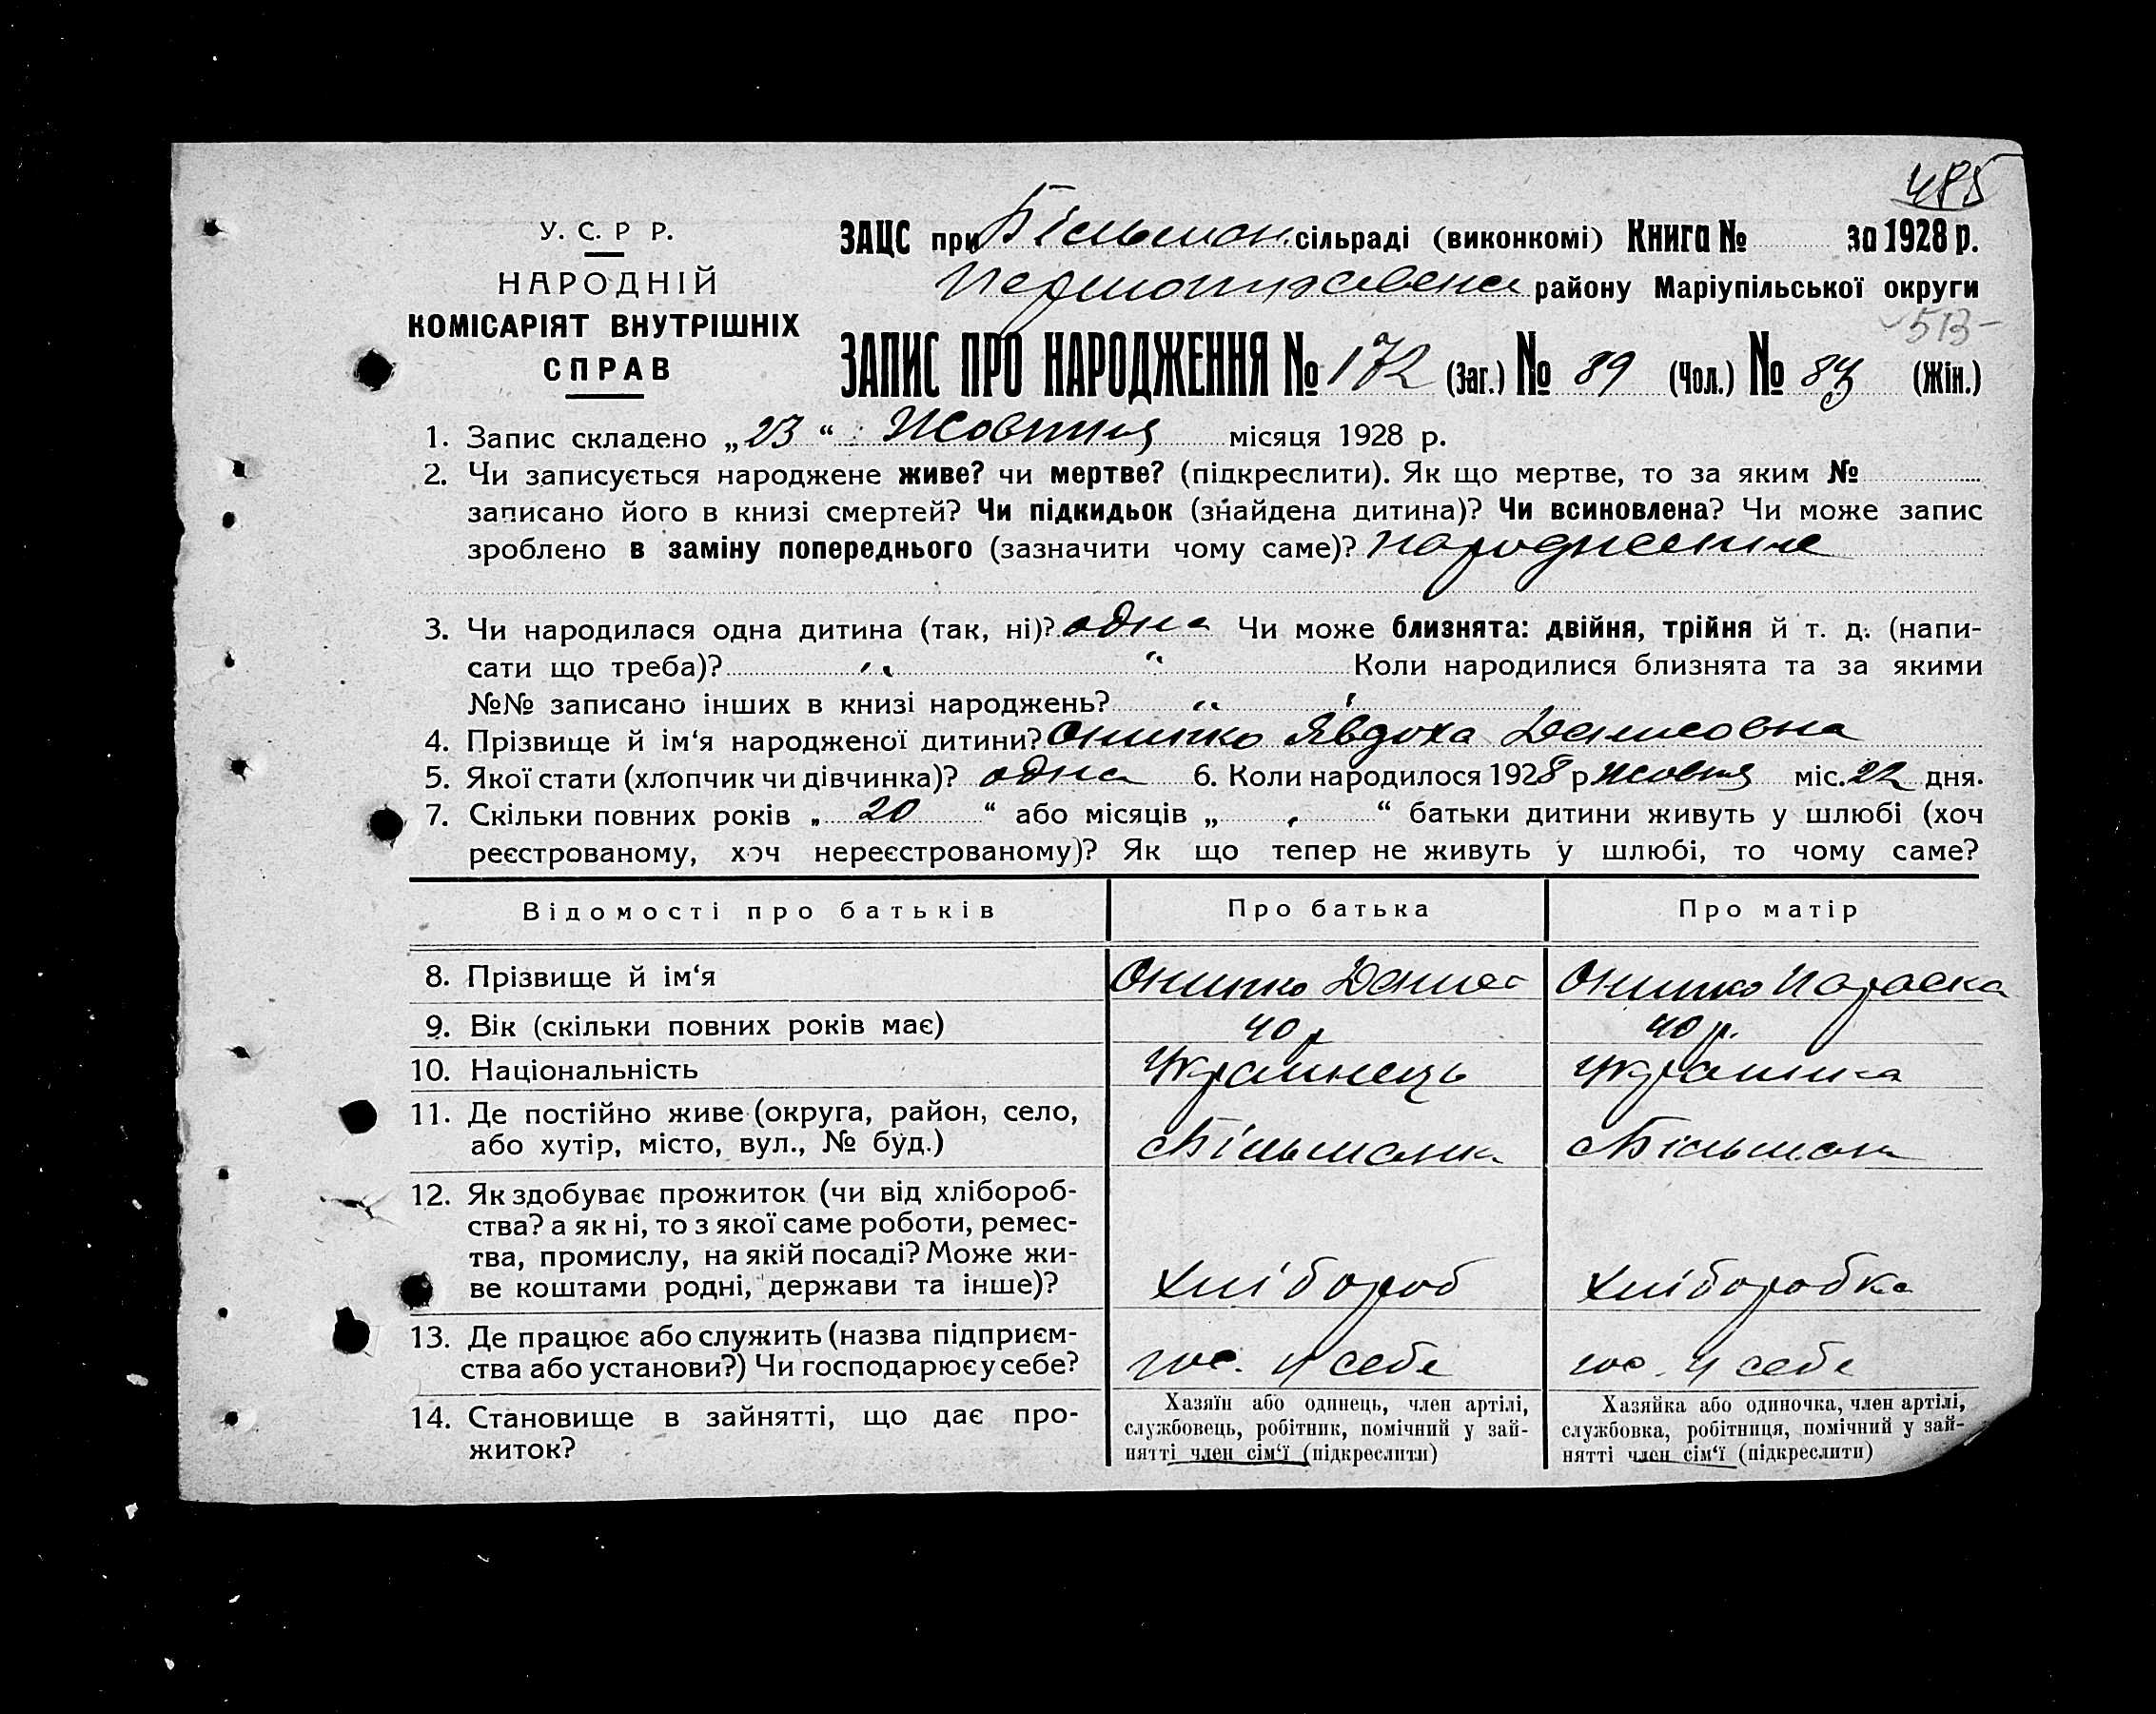 485
У. С. Р Р.
НАРОДНІЙ
КОМІСАРІЯТ ВНУТРІШНІХ
СПРАВ
ЗАЦС при Більман. сільраді (виконкомі) Книга № за 1928 р.
району Маріупільської округи
513
ЗАПИС ПРО НАРОДЖЕННЯ № 172 (Заг.) № 89 (Чол.) № 83 (Жін.)
1. Запис складено „23“ Жовтня місяця 1928 р.
2. Чи записується народжене живе? чи мертве? (підкреслити). Як що мертве, то за яким №
записано його в книзі смертей? Чи підкидьок (знайдена дитина)? Чи всиновлена? Чи може запис
зроблено в заміну попереднього (зазначити чому саме)?
3. Чи народилася одна дитина (так, ні)? одна Чи може близнята: двійня, трійня й т. д. (напи-
сати що треба)? „ „ Коли народилися близнята та за якими
№№ записано інших в книзі народжень? „
4. Прізвище й ім‘я народженої дитини? Онипко Явдоха
5. Якої стати (хлопчик чи дівчинка)? одна 6. Коли народилося 1928 р Жовтня міс. 22 дня.
7. Скільки повних років „ 20 “ або місяців „ “ батьки дитини живуть у шлюбі (хоч
реєстрованому, хоч нереєстрованому)? Як що тепер не живуть у шлюбі, то чому саме?
Відомості про батьків Про батька Про матір
8. Прізвище й ім‘я Онипко Онипко Параска
9. Вік (скільки повних років має) 40 р 40 р.
10. Національність Українець Українка
11. Де постійно живе (округа, район, село,
або хутір, місто, вул., № буд.) с Більманка с Більманк
12. Як здобуває прожиток (чи від хлібороб-
ства? а як ні, то з якої саме роботи, ремес-
тва, промислу, на якій посаді? Може жи-
ве коштами родні, держави та інше)? Хлібороб Хліборобка
13. Де працює або служить (назва підприєм-
ства або установи?) Чи господарює у себе? гос. у себе гос. у себе
14. Становище в зайнятті, що дає про-
житок?
Хазяїн або одинець, член артілі,
службовець, робітник, помічний у зай-
нятті член сім‘ї (підкреслити)
Хазяйка або одиночка, член артілі,
службовка, робітниця, помічний у зай-
нятті член сім‘ї (підкреслити)